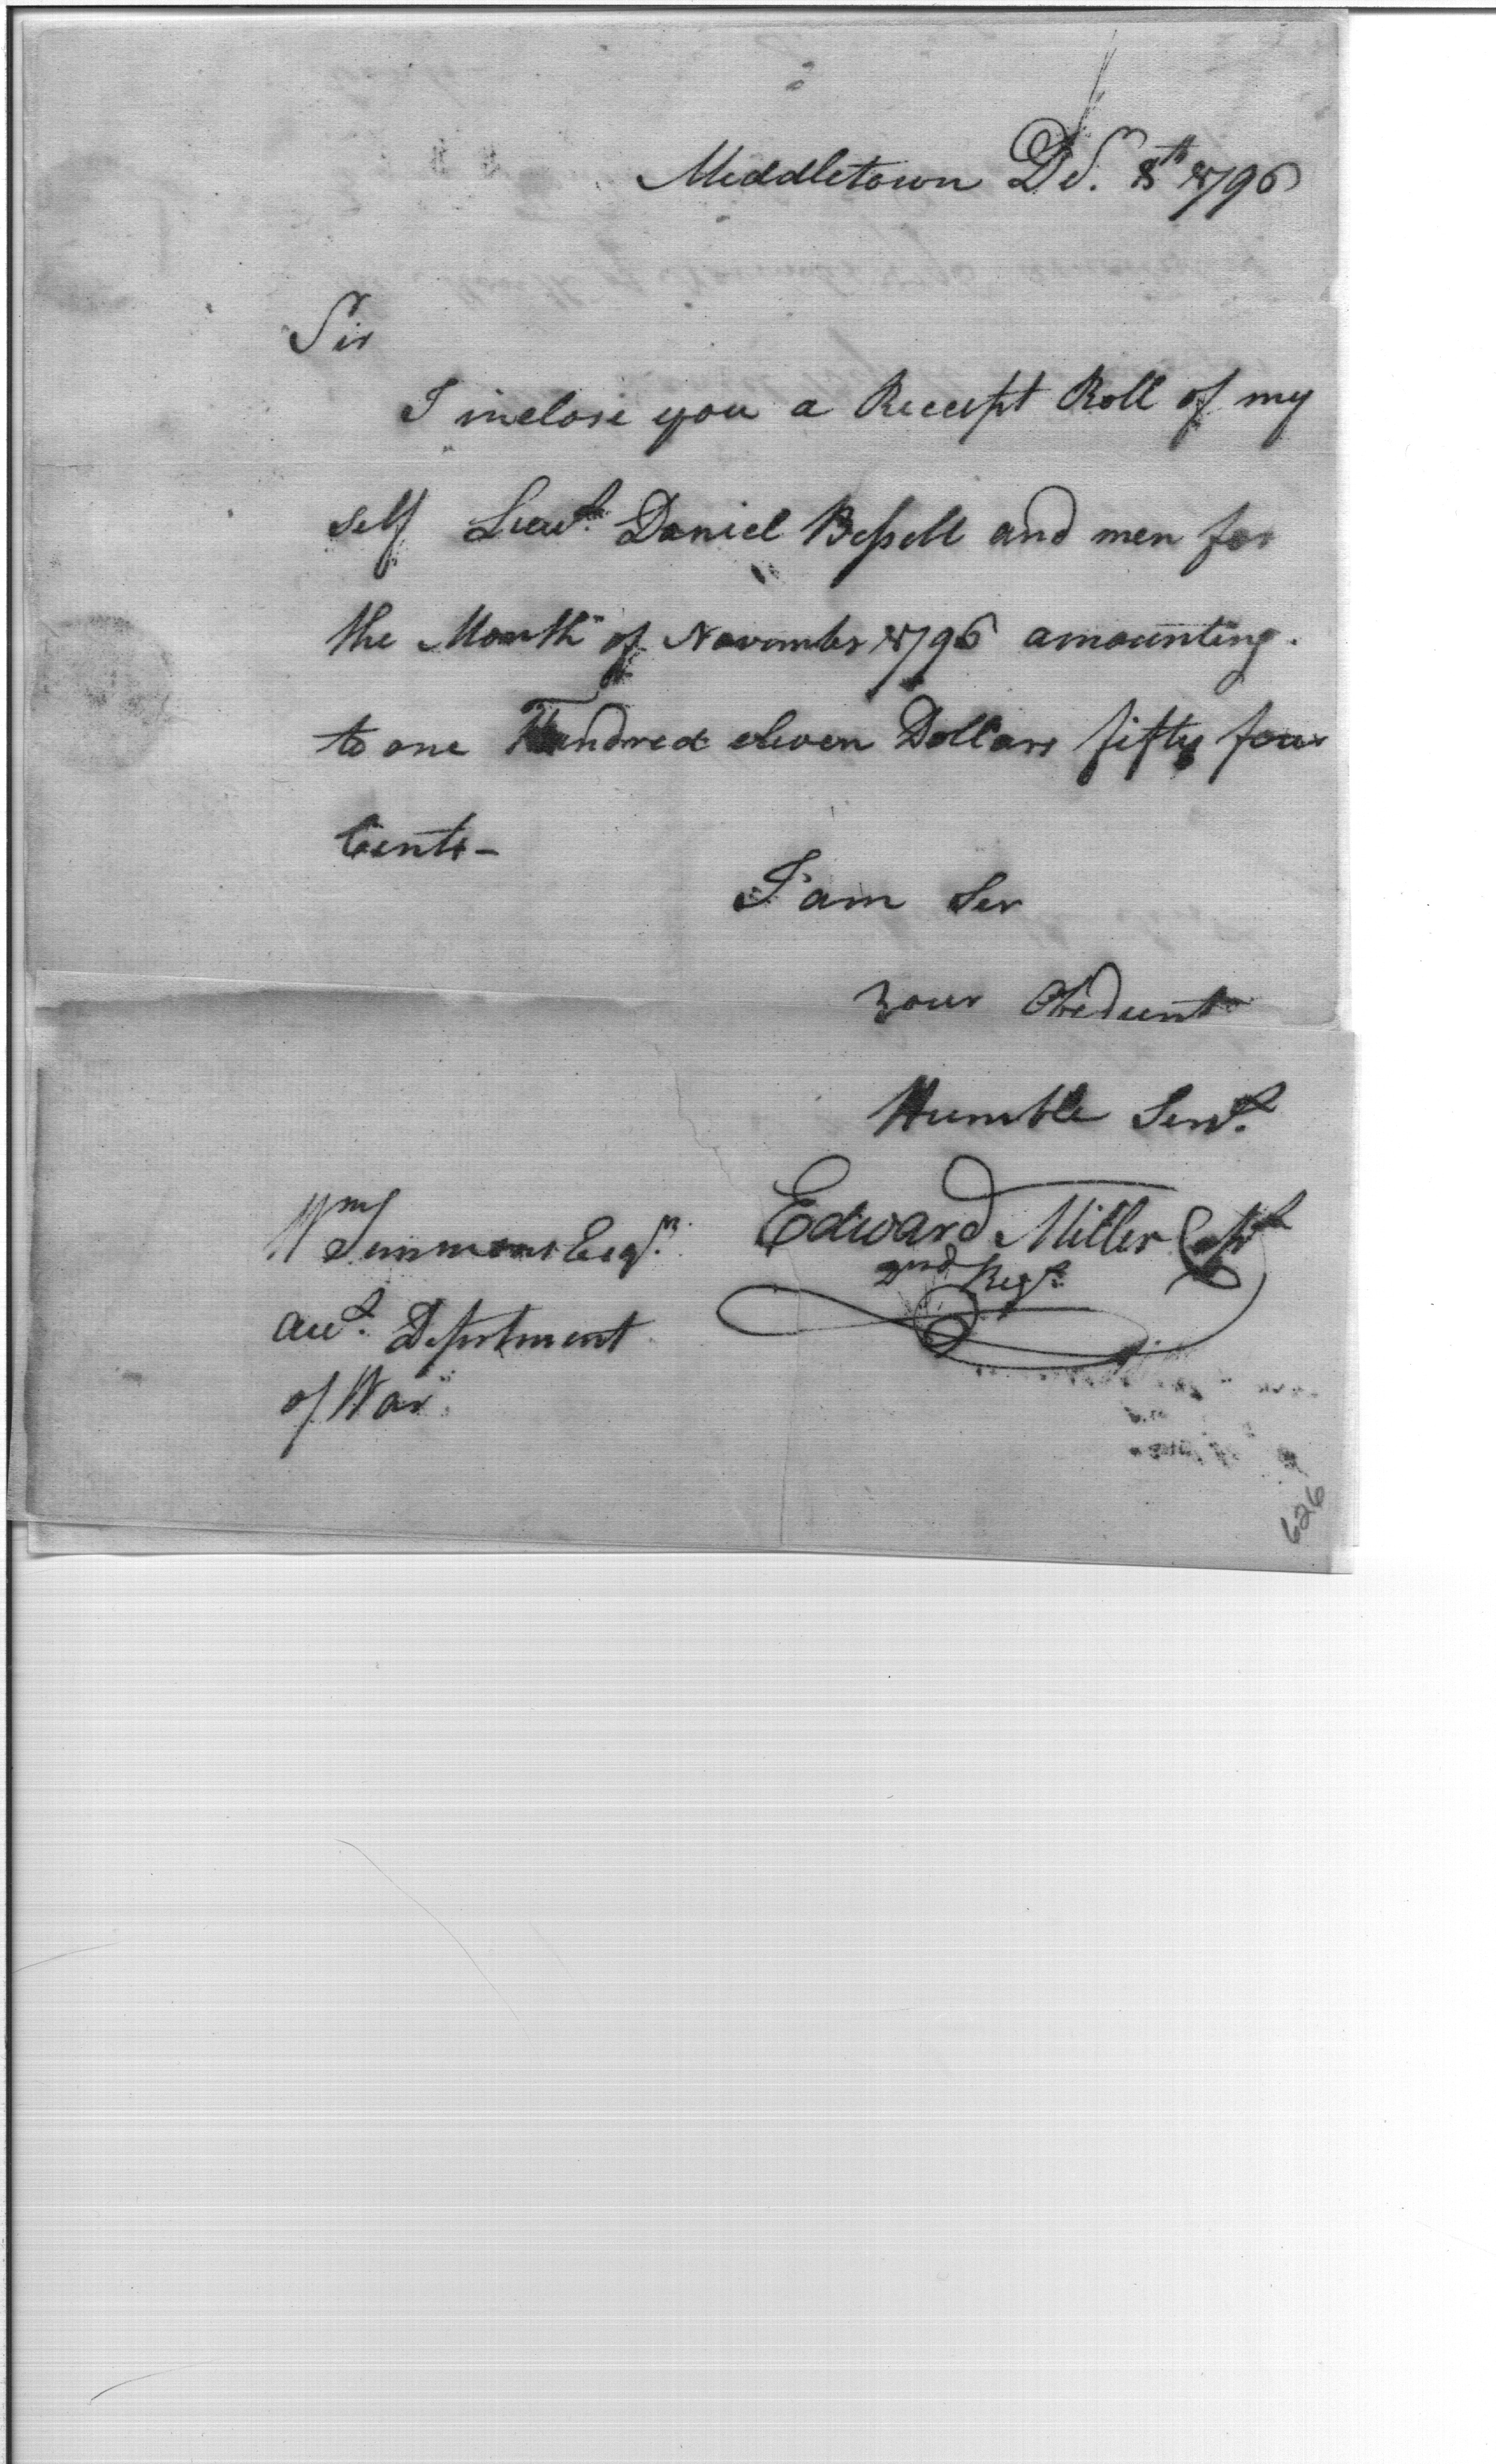 Middletown Dec. 8th 1796
Sir
I inclose you a Receipt Roll of my
self Lieut. Daniel Bissell and men for
the Month of November 1796 amounting
to one Hundred eleven Dollars fifty four
Cents -
I am Sir
your Obedient
Humble Servt.
Edward Miller Capt
2nd Regt.
Wm Simmons Esqr.
Acct. Department
of War
626